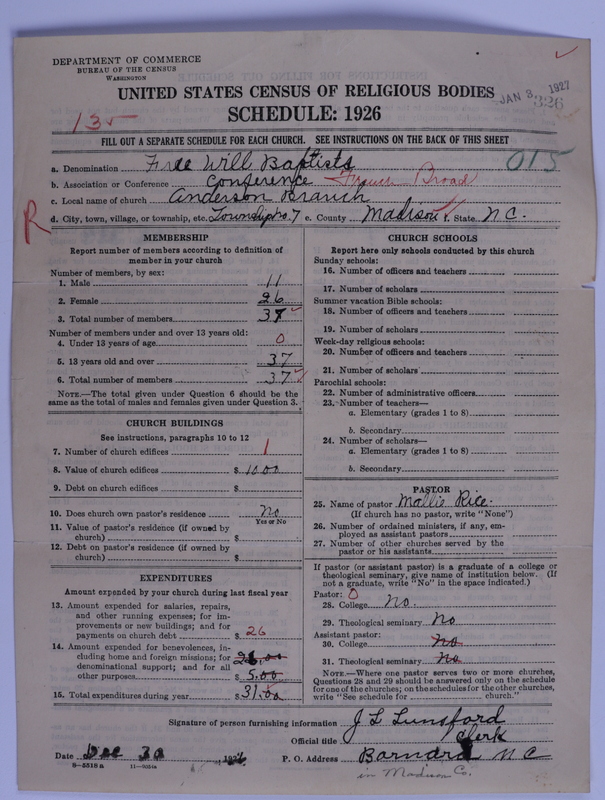 DEPARTMENT OF COMMERCE
BUREAU OF THE CENSUS
WASHINGTON
JAN 3 1927
326
UNITED STATES CENSUS OF RELIGIOUS BODIES
SCHEDULE: 1926
135
FILL OUT A SEPARATE SCHEDULE FOR EACH CHURCH. SEE INSTRUCTIONS ON THE BACK OF THIS SHEET
015
a. Denomination Free Will Baptists
b. Association or Conference Conference French Broad
c. Local name of church Anderson Branch
d. City, town, village, or township, etc. Township No. 7 e. County Madison f. State N.C.
R
MEMBERSHIP
Report number of members according to definition of
member in your church
Number of members, by sex:
1. Male 11
2. Female 26
3. Total number of members 37
Number of members under and over 13 years old:
4. Under 13 years of age 0
5. 13 years old and over 37
6. Total number of members 37
NOTE.—The total given under Question 6 should be the
same as the total of males and females given under Question 3.
CHURCH BUILDINGS
See instructions, paragraphs 10 to 12
7. Number of church edifices 1
8. Value of church edifices $ 10.00
9. Debt on church edifices $
10. Does church own pastor's residence No
Yes or No
11. Value of pastor's residence (if owned by
church) $
12. Debt on pastor's residence (if owned by
church) $
EXPENDITURES
Amount expended by your church during last fiscal year
13. Amount expended for salaries, repairs,
and other running expenses; for im-
provements or new buildings; and for
payments on church debt $ 26
14. Amount expended for benevolences, in-
cluding home and foreign missions; for 26.00
denominational support; and for all
other purposes $ 5.00
15. Total expenditures during year $ 31.00
CHURCH SCHOOLS
Report here only schools conducted by this church
Sunday schools:
16. Number of officers and teachers
17. Number of scholars
Summer vacation Bible schools:
18. Number of officers and teachers
19. Number of scholars
Week-day religious schools:
20. Number of officers and teachers
21. Number of scholars
Parochial schools:
22. Number of administrative officers
23. Number of teachers—
a. Elementary (grades 1 to 8)
b. Secondary
24. Number of scholars—
a. Elementary (grades 1 to 8)
b. Secondary
PASTOR
25. Name of pastor Mallie Rice
(If church has no pastor, write "None")
26. Number of ordained ministers, if any, em-
ployed as assistant pastors
27. Number of other churches served by the
pastor or his assistants
If pastor (or assistant pastor) is a graduate of a college or
theological seminary, give name of institution below. (If
not a graduate, write "No" in the space indicated.)
Pastor: 0
28. College No.
29. Theological seminary No
Assistant pastor:
30. College No
31. Theological seminary No
NOTE.—Where one pastor serves two or more churches,
Questions 28 and 29 should be answered only on the schedule
for one of the churches; on the schedules for the other churches,
write "See schedule for church."
Signature of person furnishing information J L Lunsford
Official title Clerk
Date Dec 30 1926 P. O. Address Barnard N C
8—5518 a
in Madison Co.